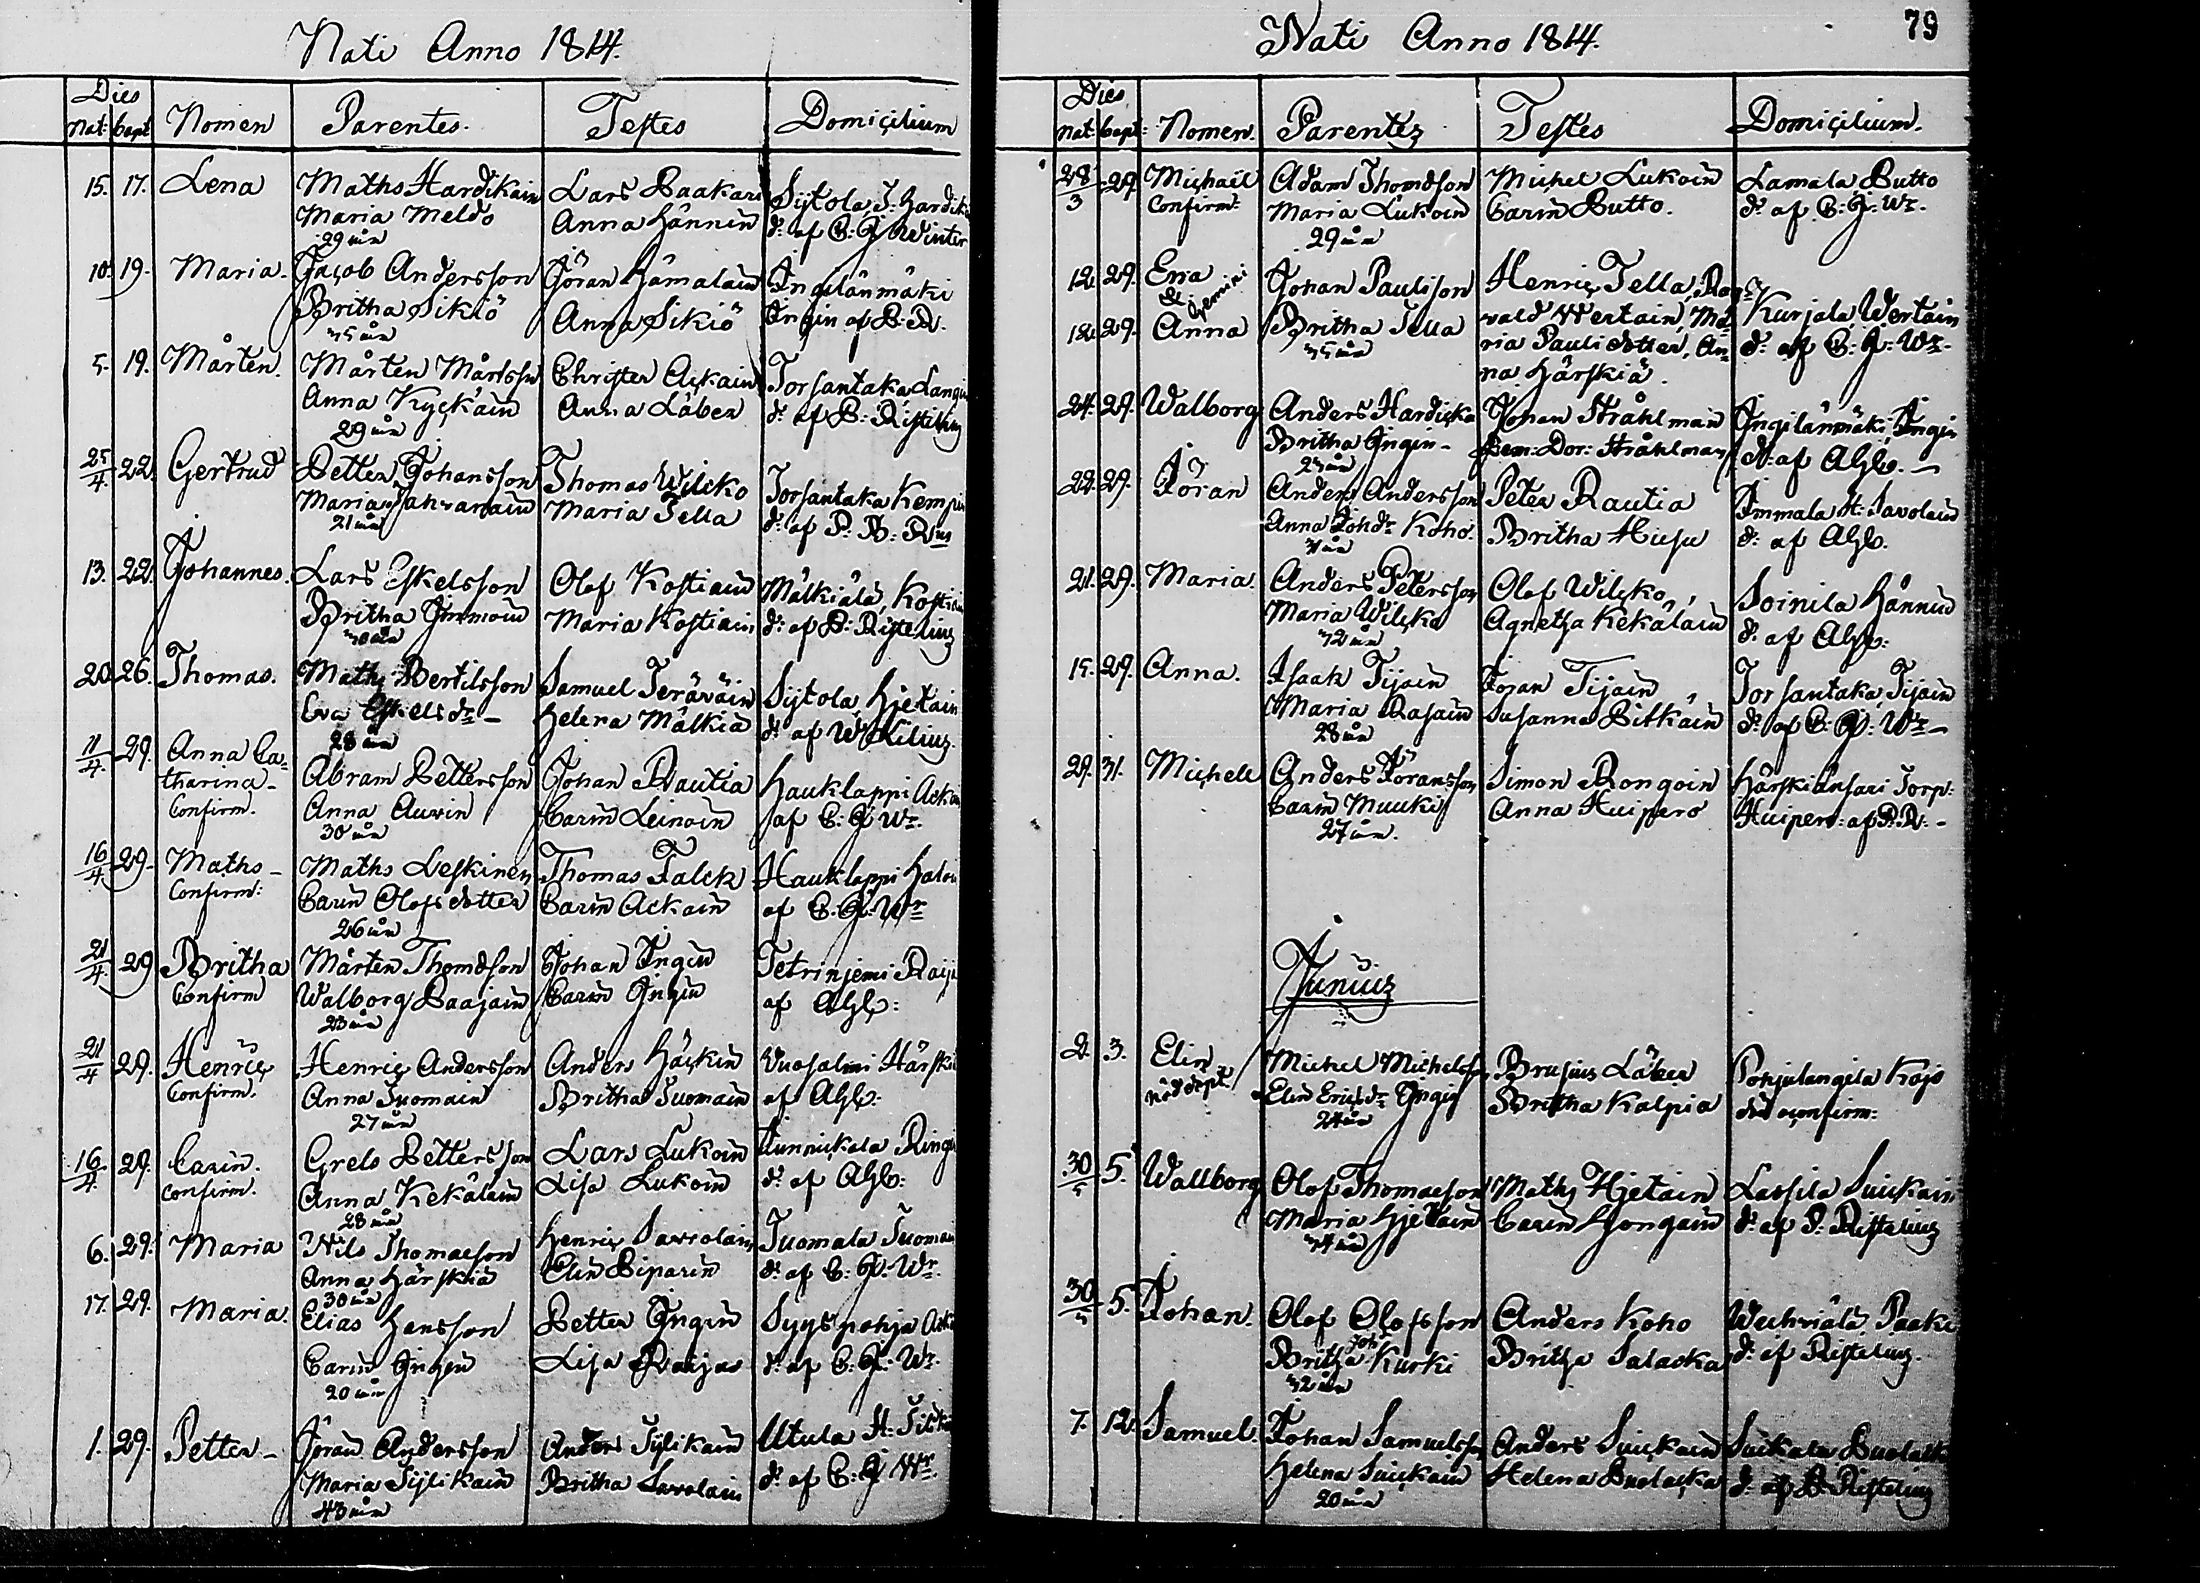 Nati Anno 1814.
Dies
Nat: bapt Nomen Parentes. Testes Domicilium
15. 17. Lena Maths Hardikain Lars Baakari Sijtola, J: Hardik
Maria Meldo Anna Hännin d: af C: G Winter
29 år
10. 19. Maria. Jacob Andersson Jöran Hämalain Ingilänmäki
Britha Sikiö Anna Sikiö Ingin af B: R.
35 år
5. 19. Mårten. Mårten Mårtsson Christer Ackain Torsantaka Langi
Anna Kyckain Anna Läber d: af B: Ristelius
29 år
25/4. 22. Gertrud Petter Johansson Thomas Wilcko Torsantaka Kempi
Maria Jahvanain Maria Tella d: af P: B: Rus
21 år
13. 22. Johannes. Lars Eskelsson Olof Kostiain Mälkiälä, Kostiain
Britha Immoin Maria Kostiain d: af B: Ristelius
30 år
20. 26. Thomas. Maths Bertilsson Samuel Teräväin Sijtola Hjetain
Eva Eskelsdr – Helena Mälkiä d: af W Kilius.
28 år
11/4. 29. Anna Ca= Abram Pettersson Johan Rautia Hauklappi Ackain
tharina – Anna Auvin Carin Leinoin af C: G Wr.
Confirm. 30 år
16/4. 29. Maths – Maths Leskinen Thomas Falck Hauklappi Haloi
Confirm: Carin Olofsdotter Carin Ackain af C: G: Wr
26 år
21/4. 29 Britha Mårten Thomasson Johan Ingin Tetrinjemi Raija
Confirm Walborg Baajain Carin Ingin af AHlb:
23 år
21/4 29. Henric Henric Andersson Anders Häckin Vuosalmi Härski
Confirm. Anna Suomain Britha Suomain af AHlb:
27 år
16/4. 29. Carin. Grels Pettersson Lars Lukoin Kunnickala Ringi
Confirm. Anna Kekäläin Lisa Lukoin d: af AHlb:
28 år
6. 29. Maria Nils Thomasson Henric Savolain Tuomala Tuomai
Anna Härskiä Elin Piparin d: af C: G: Wr.
30 år
17. 29. Maria. Elias Hansson Petter Ingin Syyspohja Acka
Carin Ingin Lisa Raijas d: af C: G: Wr.
20 år
1. 29. Petter – Jöran Andersson Anders Sijlikain Utula H: Silik
Maria Sijlikain Britha Savolain d: af C: G Wr.
43 år
79
Nati Anno 1814.
Dies
nat: bapt: Nomen. Parentes Testes Domicilium.
28/3 29 Michaël Adam Thomdsson Michel Lukoin Lamala Butto
Confirm: Maria Lukoin Carin Butto. d: af C: G: Wr.
29 år
12 29. Eva Johan Paulsson Henric Tella, Rag=
& Gemini wald Wertain, Ma= Kurjala, Wertäin
12. 29. Anna Britha Tella ria Paulidotter, An= d: af C: G: Wr.
35 år na Härskiä.
24. 29. Walborg Anders Hardicka Johan Stråhlman Ingilänmäki, Ingin
Britha Ingin – Dem: Dor: Stråhlman d: af AHlb. –
23 år
22. 29. Jöran Anders Andersson Peter Rautia Immala H: Savolain
Anna Johdr Koho. Britha Hiesu d: af AHlb.
31 år
21. 29. Maria. Anders Petersson Olof Wilcko, Soinila Hännin
Maria Wilcko Agnetha Kekäläin d: af AHlb:
32 år
15. 29. Anna. Isaak Tijain Joran Tijain Torsantaka, Tijain
Maria Rasain Susanna Pitkäin d: af C: G: Wr –
28 år
29. 31. Michell Anders Jöransson Simon Rongoin Härskiänsari Torp:
Carin Muuki Anna Huipero Huipero: af P.R: –
27 år.
Junius
2. 3. Elin Michel Michelsson Brusius Läber Pohjalangila Kojo
nöddöpt. Elin Ericsdr Ingin Britha Kalpia d: confirm:
24 år
30/5 5. Wallborg Olof Thomasson Maths Hjetain Lassila Suickain
Maria Hjetain Carin Hjongain d: af P: Ristelius
34 år
30/5 5. Johan. Olof Olofsson Anders Koho Wechviälä Paaki
Britha Joh: Kurki Britha Salacka d: af Ristelius.
32 år
7. 12. Samuel. Johan Samuelsson Anders Suickain Suikala Buolack
Helena Suickain Helena Buolacka d: af B: Ristelius
20 år